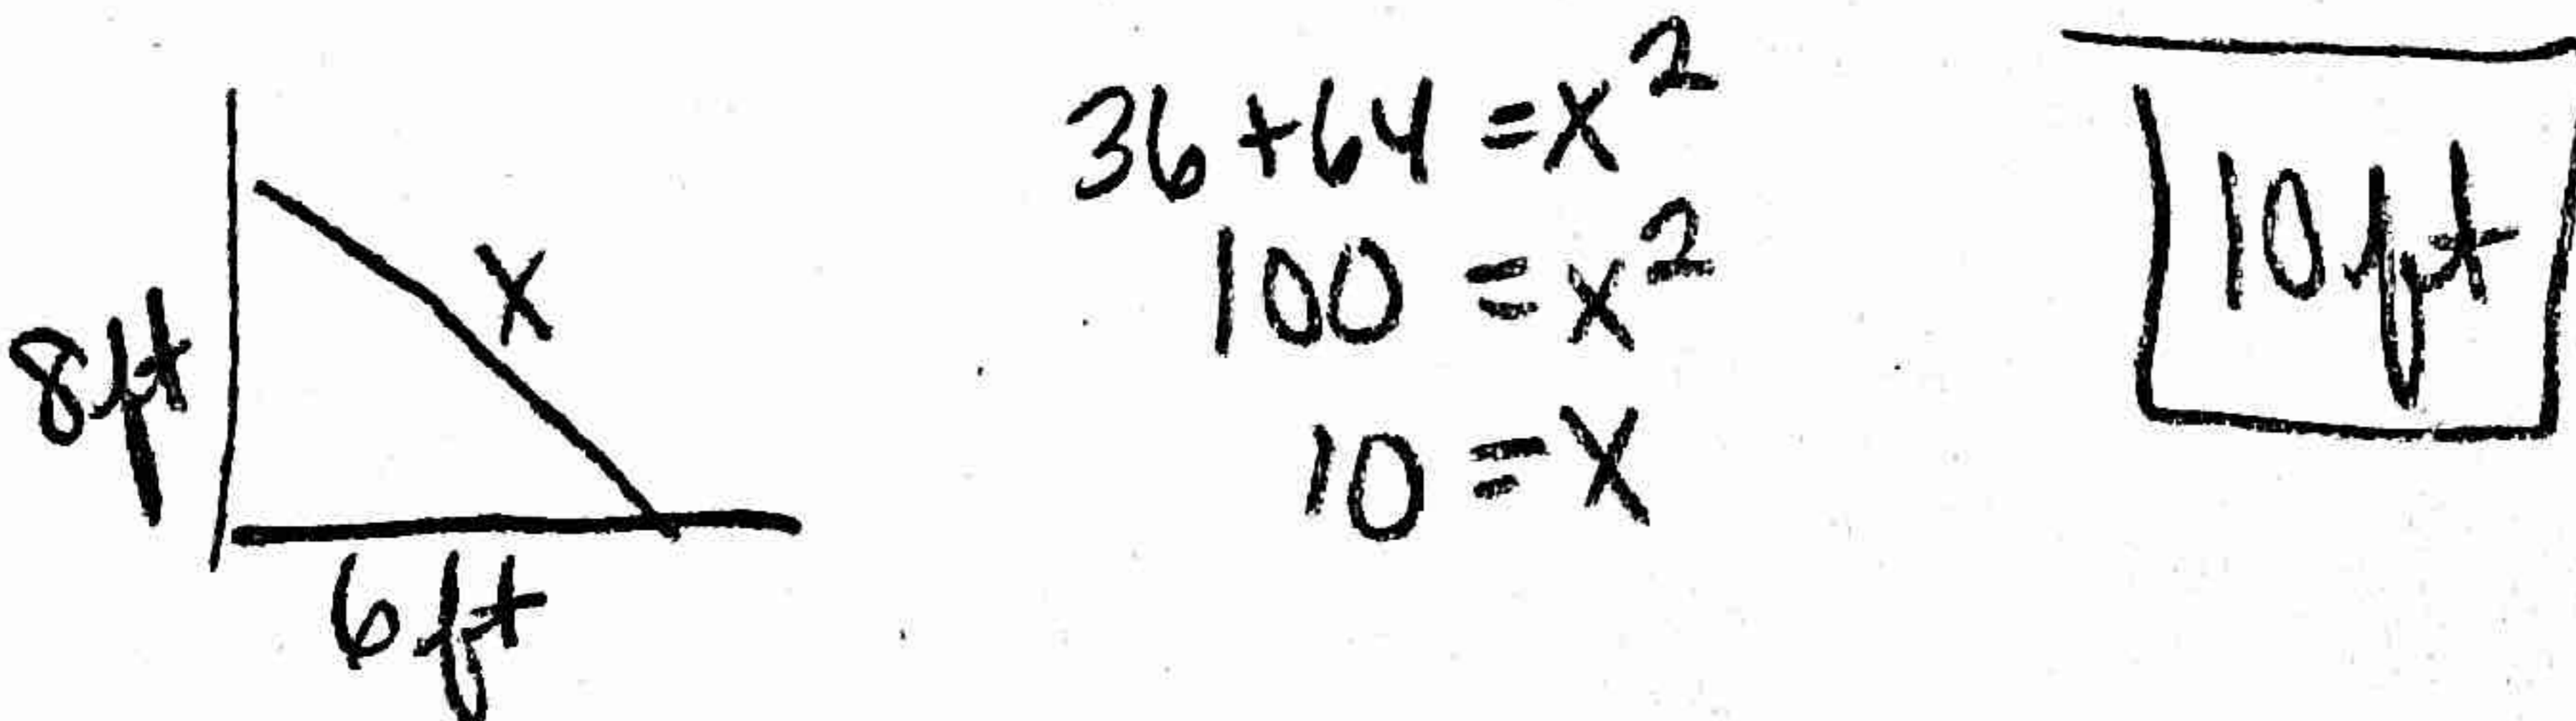 8ft
x
6 ft
36 + 64 = x²
100 = x²
10 = x
10 ft